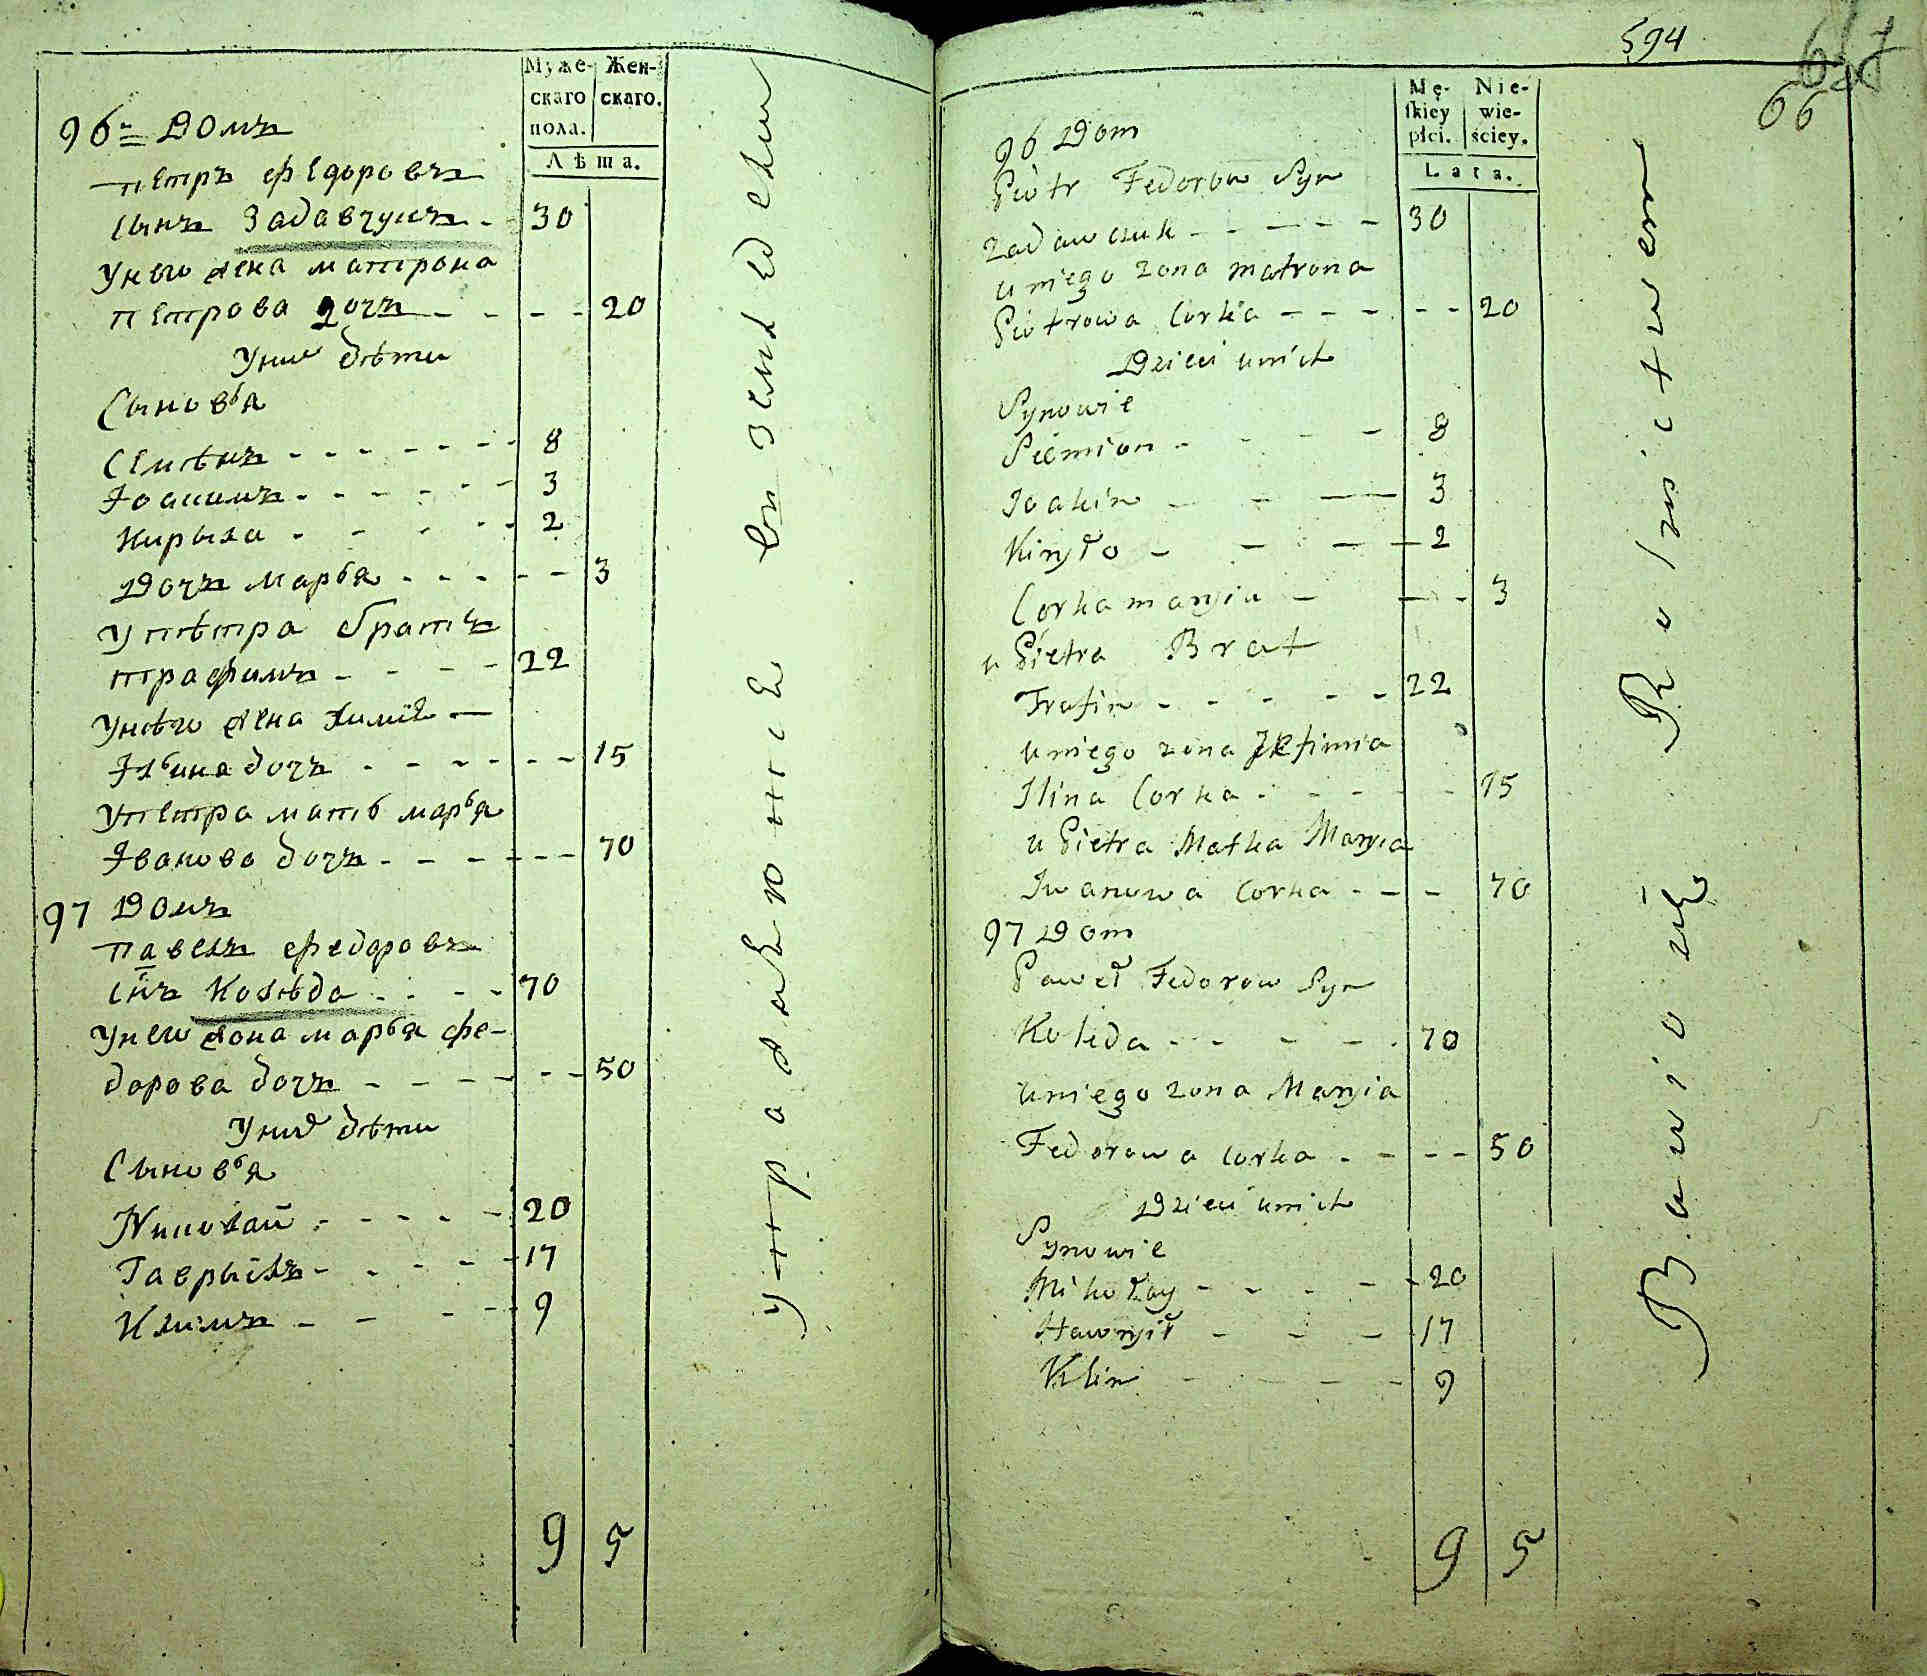 Муже-
скаго
пола.
Жен-
скаго.
Лѣта.
96й Домъ
петръ федоровъ
сынъ Задавчукъ - 30
Унего жена матрона
петрова дочъ - - - - 20
Уних дѣти
Сыновья
Семѣнъ - - - - - - - 8
Іоакимъ - - - - - - 3
Кирыла - - - - 2
Дочъ Марья - - - - - - 3
У пѣтра братъ
трафимъ - - - - 22
Унѣго жена
Ільина дочъ - - - - - - 15
У петра мать марья
Іванова дочъ - - - - - - 70
97 Домъ
павелъ федоровъ
снъ Колѣда - - - - 70
Унего жона марья фе-
дорова дочъ - - - - - - 50
Уних дѣти
Сыновья
Николай - - - - - 20
Гаврыилъ - - - - - 17
Климъ - - - - 9
9 5
упражжение въ земледелии
594
66
Mę-
skiey
płci.
Nie-
wie-
ściey.
Lata.
96 Dom
Piotr Fedorow Syn
Zadawczuk - - - - - 30
u niego zona matrona
Piotrowa Corka - - - - - 20
Dzieci unich
Synowie
Siemion - - - - 8
Joakim - - - 3
Kiryło - - - - 2
Corka maryia - - - 3
u Pietra Brat
Trafim - - - - - 22
u niego zona Jefimia
Ilina Corka - - - - - 15
u Pietra Matka Maryia
Iwanowa Corka - - - 70
97 Dom
Paweł Fedorow Syn
Koleda - - - - - 70
u niego zona Maryia
Fedorowa corka - - - - 50
Dzieci unich
Synowie
Mikołay - - - - - 20
Hawryił - - - 17
Klim - - - - 9
9 5
Bawio się Rolnictwem